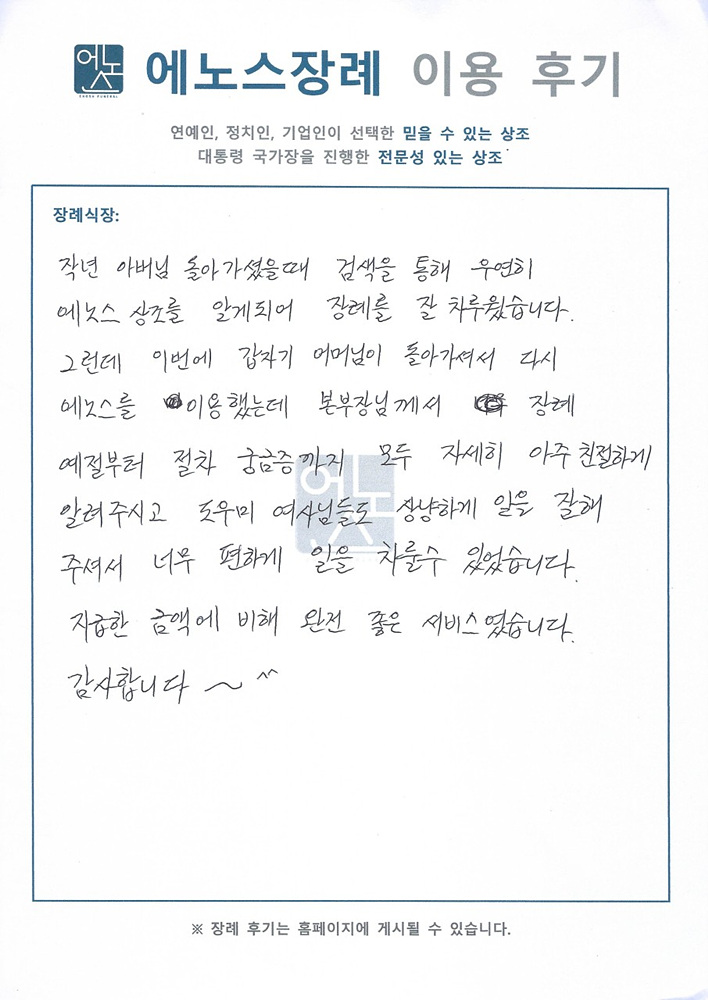 에노스
ENOSS FUNERAL
에노스장례 이용 후기
연예인, 정치인, 기업인이 선택한 믿을 수 있는 상조
대통령 국가장을 진행한 전문성 있는 상조
장례식장:
작년 아버님 돌아가셨을때 검색을 통해 우연히
에노스 상조를 알게되어 장례를 잘 차루웠습니다.
그런데 이번에 갑자기 어머님이 돌아가셔서 다시
에노스를 이용했는데 본부장님께서 장례
예절부터 절차 궁금증까지 모두 자세히 아주 친절하게
알려주시고 도우미 여사님들도 상냥하게 일을 잘해
주셔서 너무 편하게 일을 차룰수 있었습니다.
지급한 금액에 비해 완전 좋은 서비스였습니다.
감사합니다 ~ ^^
※ 장례 후기는 홈페이지에 게시될 수 있습니다.